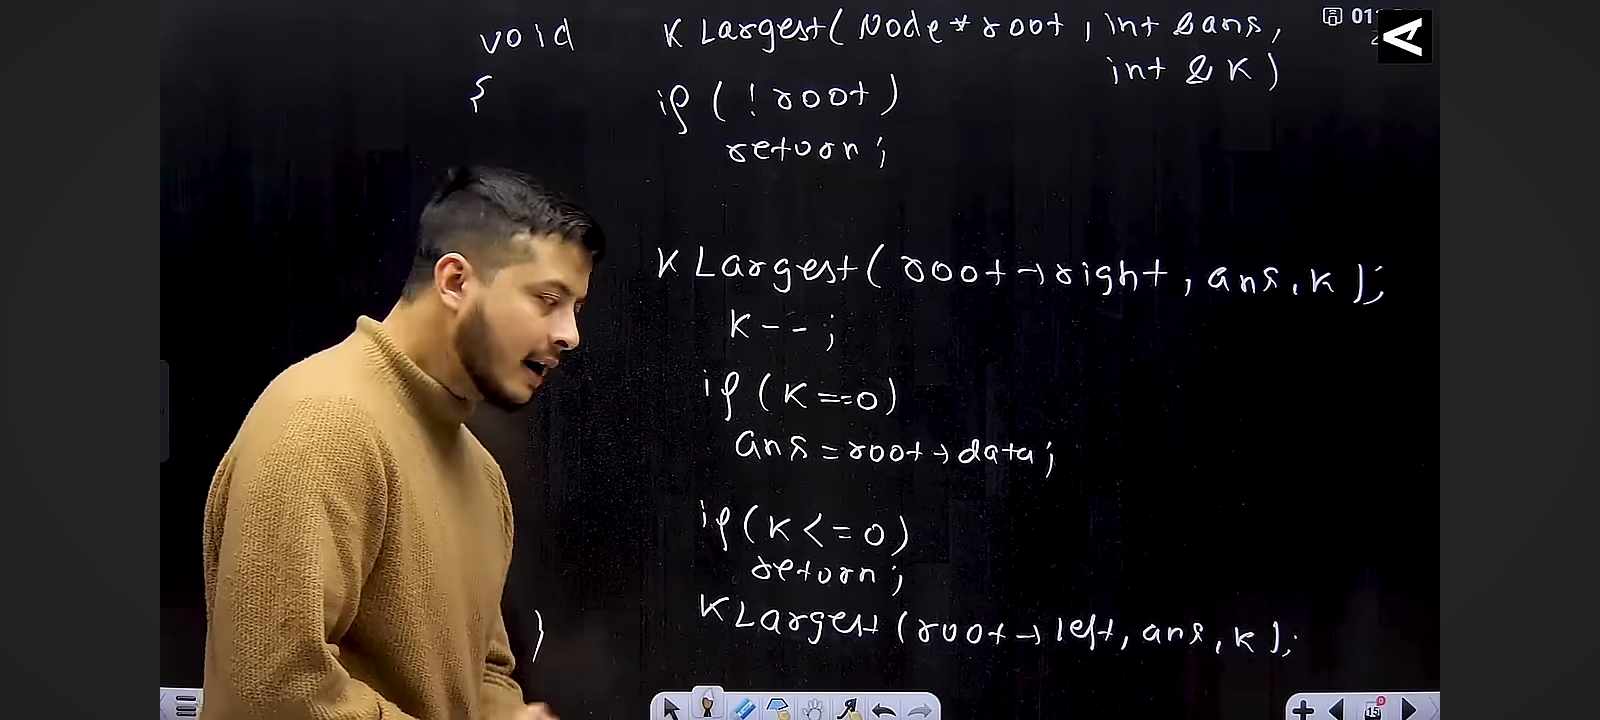 void KLargest(Node* root, int &ans,
int & K)
{
if (!root)
return;
KLargest(root→right, ans, K);
K--;
if (K==0)
ans=root→data;
if (K<=0)
return;
KLargest (root→left, ans, K);
}
15